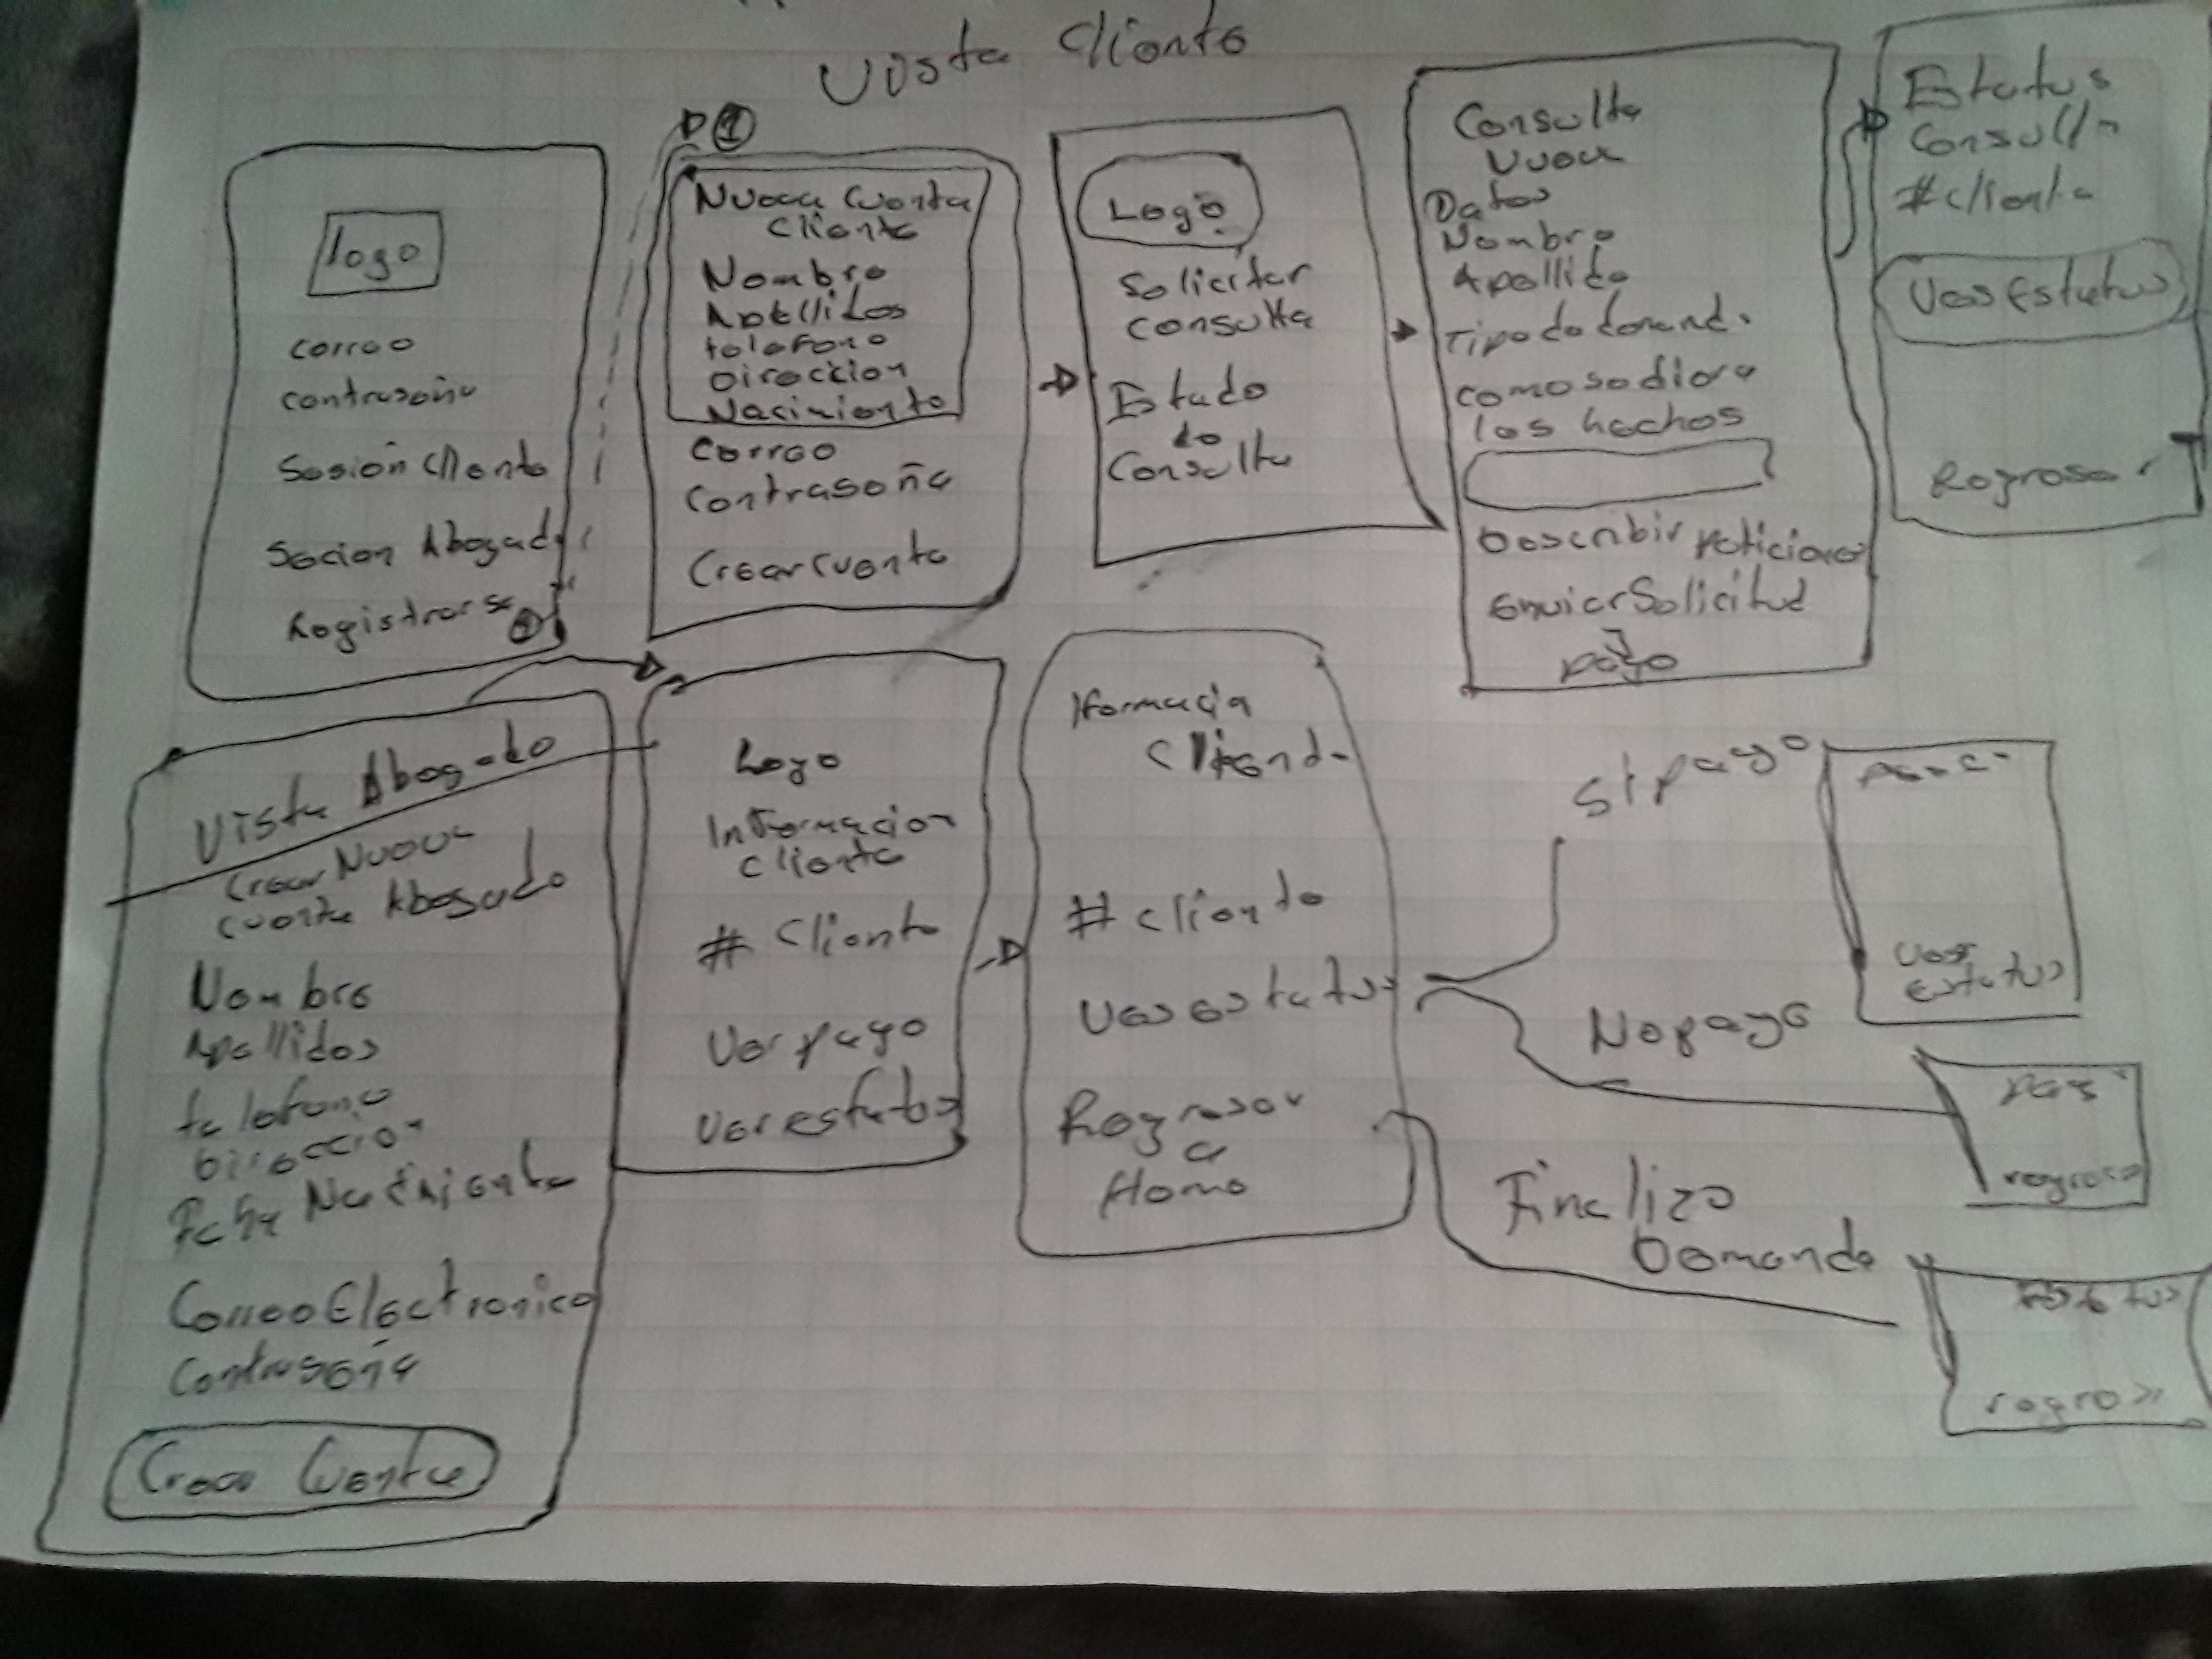 Vista Cliente
1
logo
correo
contraseña
Sesión Cliente
Secion Abogad
Registrarse
Nueva Cuenta
Cliente
Nombre
Apellidos
telefono
Direccion
Nacimiento
Correo
Contraseña
Crear Cuenta
Logo
Solicitar
Consulta
Estado
de
Consulta
Consulta
Nueva
Datos
Nombre
Apellido
Tipo de demand
como se diera
los hechos
Describir peticiones
enviar Solicitud
y
pago
Estatus
Consulta
#cliente
Ver Estatus
Regresar
Vista Abogado
Crear Nueva
cuenta Abogado
Nombre
Apellidos
telefono
Direccion
Nacimiento
Correo Electronico
Contraseña
Crear Cuenta
Logo
Informacion
cliente
# Cliente
Ver pago
Ver estatus
# cliente
Ver estatus
Regresar
a
Home
si pago
Ver
Estatus
No pago
regreso
Finalizo
Demanda
Estatus
regreso